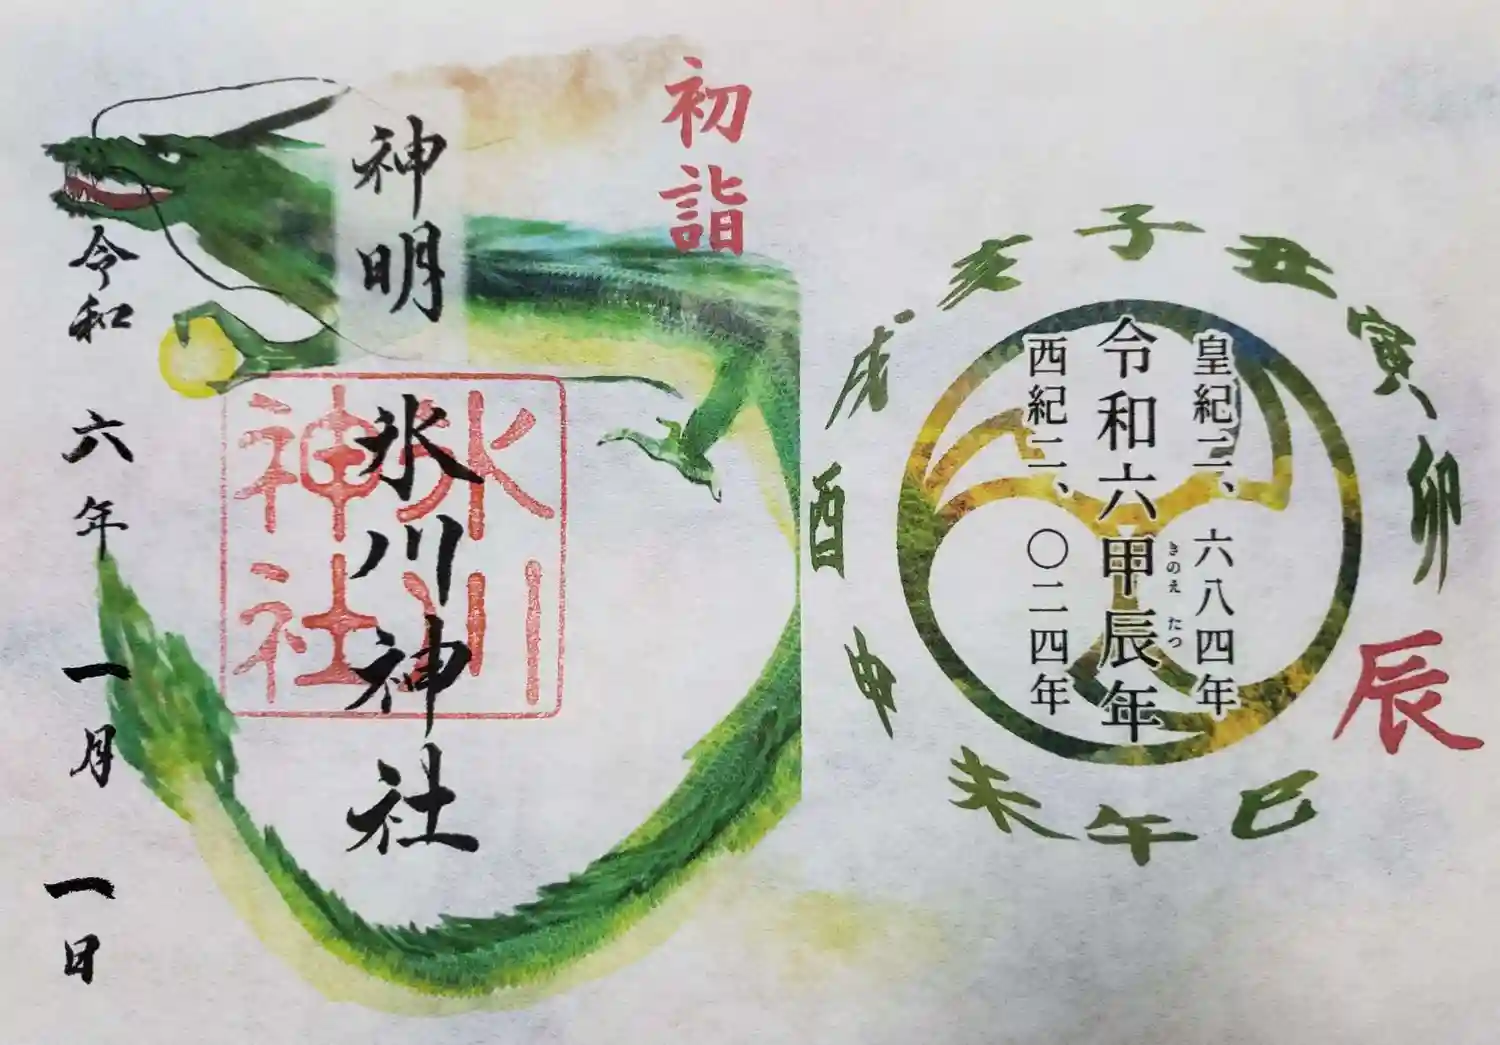 子
丑
寅
卯
辰
巳
午
未
申
酉
戌
亥
皇紀二、六八四年
令和六甲辰年
きのえ たつ
西紀二、〇二四年
初詣
神明
氷川神社
氷川
神社
令和六年一月一日